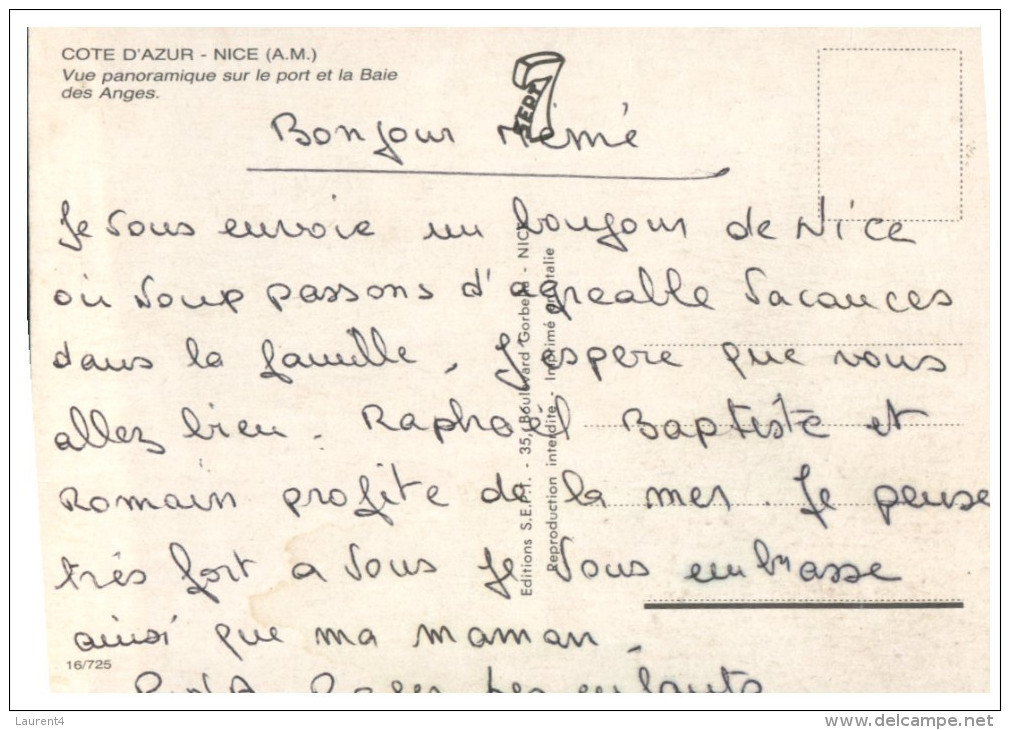 COTE D'AZUR - NICE (A.M.)
Vue panoramique sur le port et la Baie
des Anges.
SEPT
Bonjour Mémé
Je vous envoie un bonjour de Nice
où nous passons d'agreable vacances
dans la famille. J'espere que vous
allez bien. Raphaël Baptiste et
Romain profite de la mer. Je pense
très fort a vous Je vous embrasse
ainsi que ma maman.
enfants
Editions S.E.P.T. - 35, Boulevard Gorbella - NICE
Reproduction interdite - Imprimé en Italie
16/725
Laurent4
www.delcampe.net